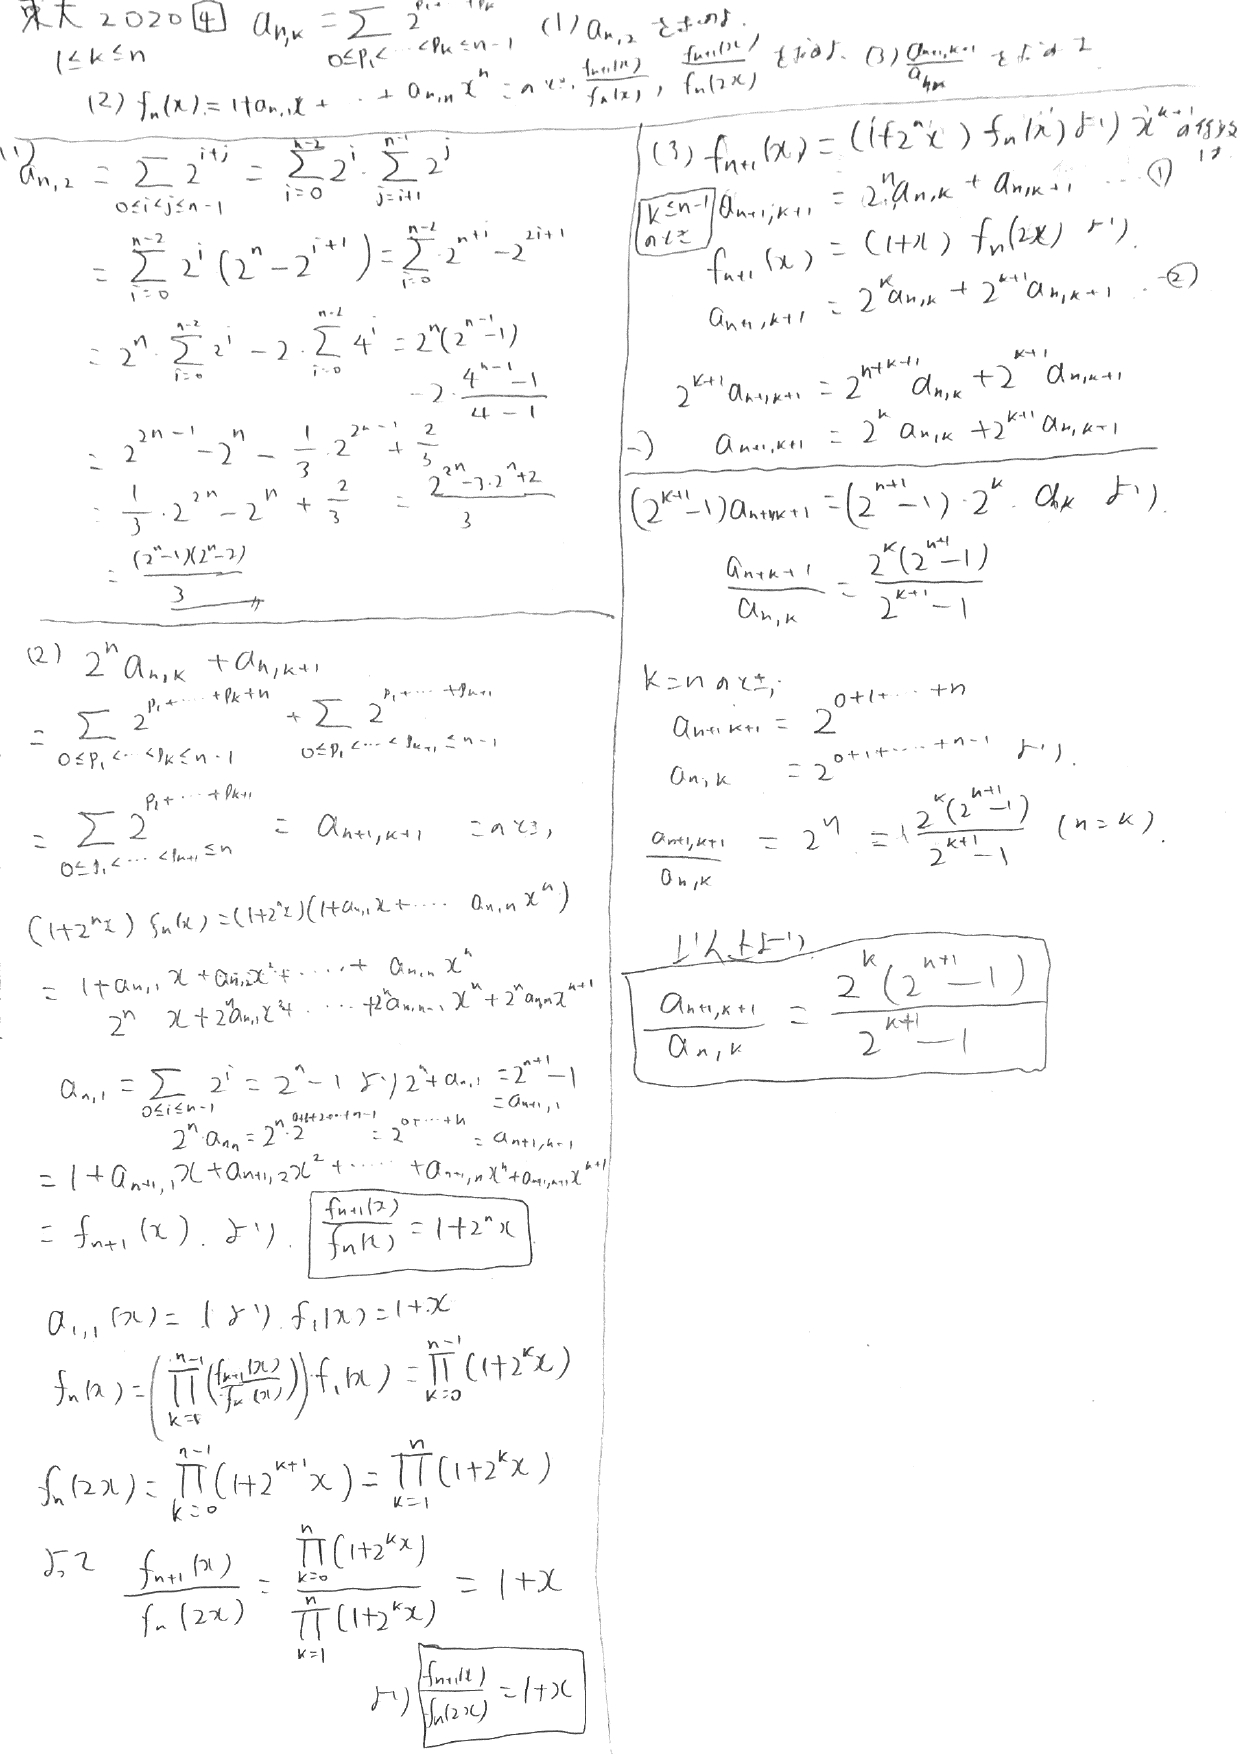 東大 2020 4 a_{n,k} = Σ_{0≤p_1<…<p_k≤n-1} 2^{p_1+…+p_k} (1) a_{n,2} を求めよ.
1≤k≤n
(2) f_n(x) = 1+a_{n,1}x + … + a_{n,n}x^n のとき, f_{n+1}(x)/f_n(x), f_{n+1}(x)/f_n(2x) を求めよ. (3) a_{n+1,k+1}/a_{n,k} を求めよ
(1)
a_{n,2} = Σ_{0≤i<j≤n-1} 2^{i+j} = Σ_{i=0}^{n-2} 2^i · Σ_{j=i+1}^{n-1} 2^j
= Σ_{i=0}^{n-2} 2^i (2^n - 2^{i+1}) = Σ_{i=0}^{n-2} 2^{n+i} - 2^{2i+1}
= 2^n · Σ_{i=0}^{n-2} 2^i - 2 · Σ_{i=0}^{n-2} 4^i = 2^n(2^{n-1}-1)
- 2 · (4^{n-1}-1)/(4-1)
= 2^{2n-1} - 2^n - 1/3 · 2^{2n-1} + 2/3
= 1/3 · 2^{2n} - 2^n + 2/3 = (2^{2n} - 3·2^n + 2)/3
= (2^n-1)(2^n-2)/3
(2) 2^n a_{n,k} + a_{n,k+1}
= Σ_{0≤p_1<…<p_k≤n-1} 2^{p_1+…+p_k+n} + Σ_{0≤p_1<…<p_{k+1}≤n-1} 2^{p_1+…+p_{k+1}}
= Σ_{0≤p_1<…<p_{k+1}≤n} 2^{p_1+…+p_{k+1}} = a_{n+1,k+1} このとき,
(1+2^n x) f_n(x) = (1+2^n x)(1+a_{n,1}x+…… a_{n,n}x^n)
= 1+a_{n,1}x + a_{n,2}x^2 + …… + a_{n,n}x^n
2^n x + 2^n a_{n,1}x^2 + … + 2^n a_{n,n-1}x^n + 2^n a_{n,n}x^{n+1}
a_{n,1} = Σ_{0≤i≤n-1} 2^i = 2^n - 1 より 2^n + a_{n,1} = 2^{n+1} - 1
= a_{n+1,1}
2^n · a_{n,n} = 2^n · 2^{0+1+2+…+n-1} = 2^{0+…+n} = a_{n+1,n+1}
= 1+a_{n+1,1}x + a_{n+1,2}x^2 + …… + a_{n+1,n}x^n + a_{n+1,n+1}x^{n+1}
= f_{n+1}(x). より. f_{n+1}(x)/f_n(x) = 1+2^n x
a_{1,1}(x) = 1 より f_1(x) = 1+x
f_n(x) = (Π_{k=1}^{n-1} (f_{k+1}(x)/f_k(x))) · f_1(x) = Π_{k=0}^{n-1} (1+2^k x)
f_n(2x) = Π_{k=0}^{n-1} (1+2^{k+1}x) = Π_{k=1}^{n} (1+2^k x)
よって f_{n+1}(x)/f_n(2x) = Π_{k=0}^{n} (1+2^k x) / Π_{k=1}^{n} (1+2^k x) = 1+x
より f_{n+1}(x)/f_n(2x) = 1+x
(3) f_{n+1}(x) = (1+2^n x) f_n(x) より x^{k+1} の係数は
k≤n-1 のとき a_{n+1,k+1} = 2^n a_{n,k} + a_{n,k+1} … ①
f_{n+1}(x) = (1+x) f_n(2x) より.
a_{n+1,k+1} = 2^k a_{n,k} + 2^{k+1} a_{n,k+1} … ②
2^{k+1} a_{n+1,k+1} = 2^{n+k+1} a_{n,k} + 2^{k+1} a_{n,k+1}
-) a_{n+1,k+1} = 2^k a_{n,k} + 2^{k+1} a_{n,k+1}
(2^{k+1}-1) a_{n+1,k+1} = (2^{n+1}-1) · 2^k · a_{n,k} より.
a_{n+1,k+1}/a_{n,k} = 2^k(2^{n+1}-1)/(2^{k+1}-1)
k=n のとき,
a_{n+1,k+1} = 2^{0+1+…+n}
a_{n,k} = 2^{0+1+……+n-1} より.
a_{n+1,k+1}/a_{n,k} = 2^n = 2^k(2^{n+1}-1)/(2^{k+1}-1) (n=k).
以上より
a_{n+1,k+1}/a_{n,k} = 2^k(2^{n+1}-1)/(2^{k+1}-1)